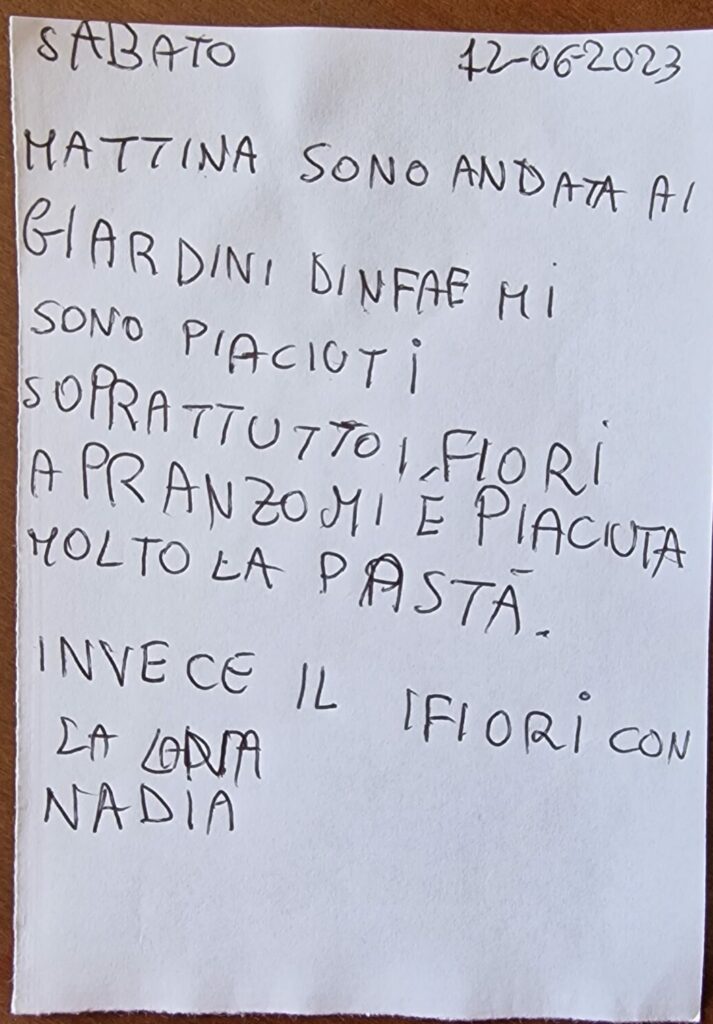 SABATO 12-06-2023
MATTINA SONO ANDATA AI
GIARDINI DINFAE MI
SONO PIACIUTI
SOPRATTUTTO I FIORI
A PRANZO MI È PIACIUTA
MOLTO LA PASTA.
INVECE IL IFIORI CON
LA
NADIA